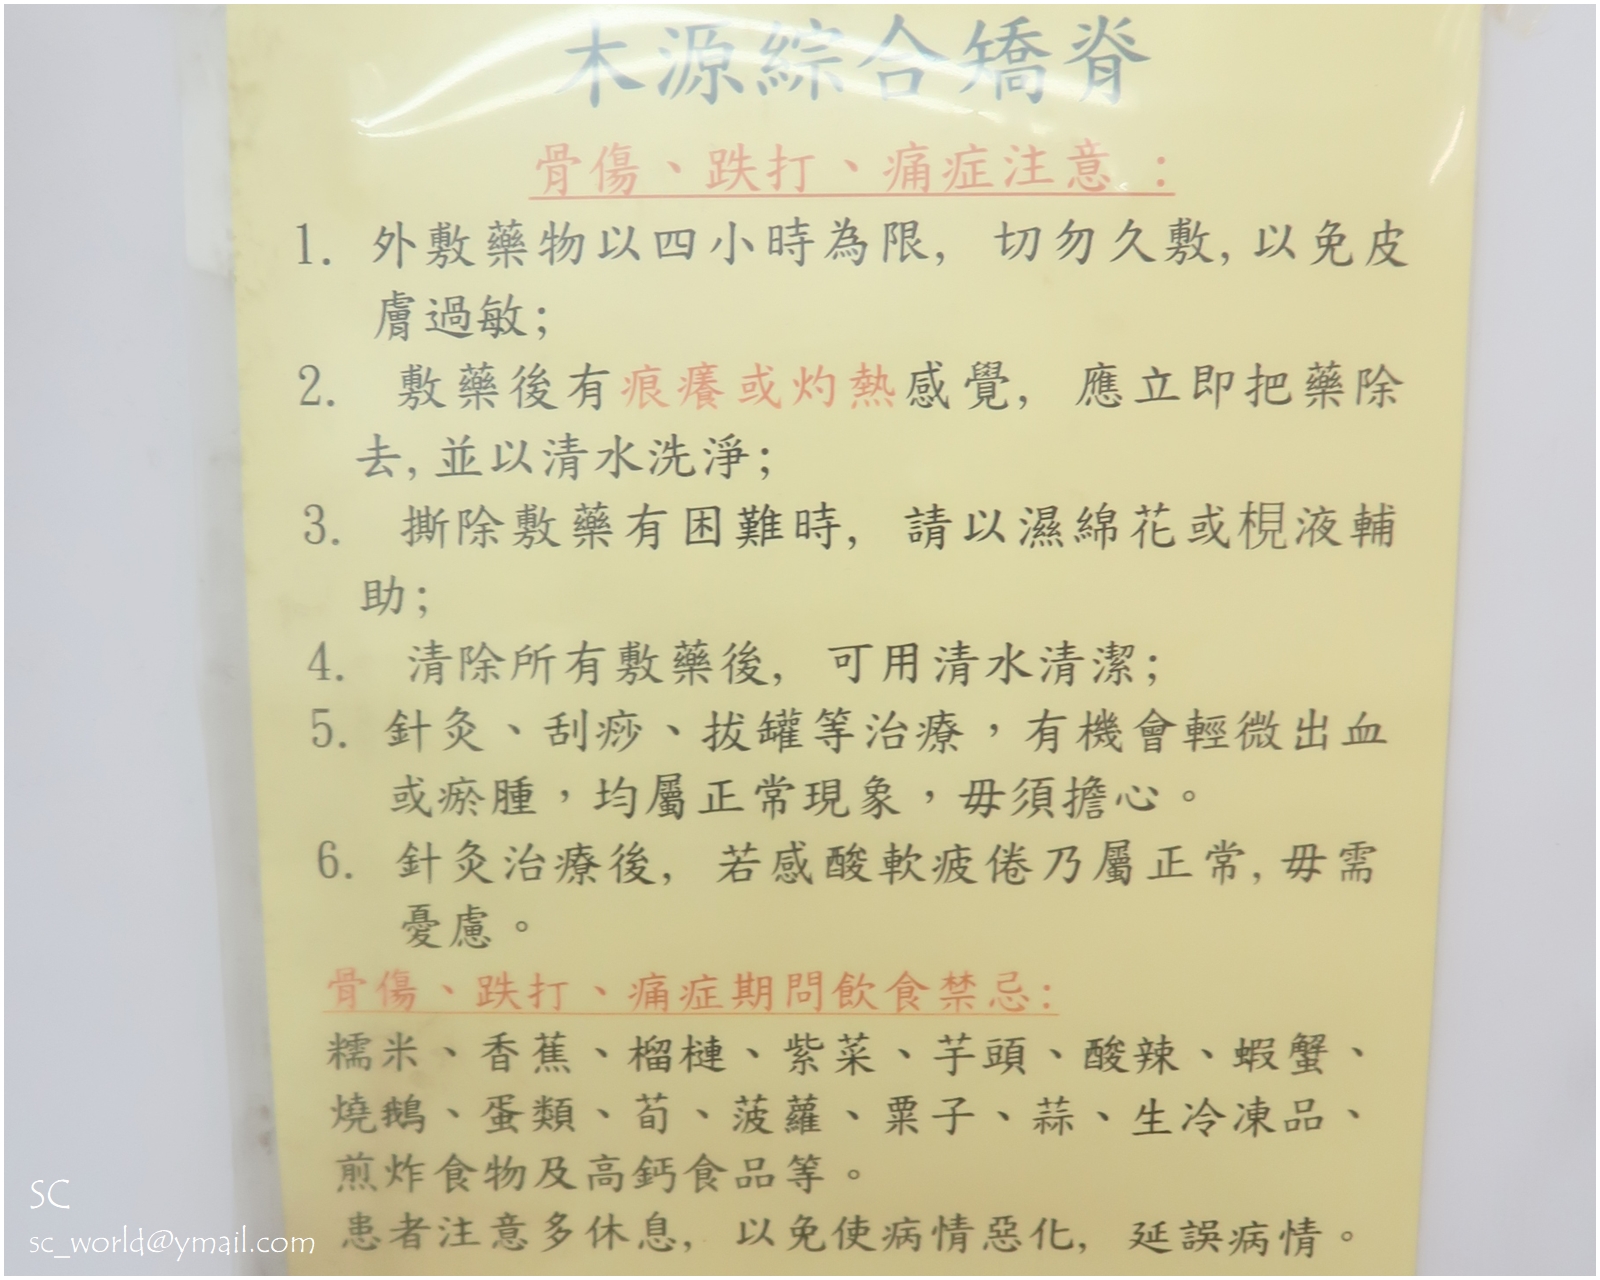 木源綜合矯脊
骨傷、跌打、痛症注意 :
1. 外敷藥物以四小時為限, 切勿久敷,以免皮
膚過敏;
2. 敷藥後有痕癢或灼熱感覺, 應立即把藥除
去,並以清水洗淨;
3. 撕除敷藥有困難時, 請以濕綿花或梘液輔
助;
4. 清除所有敷藥後, 可用清水清潔;
5. 針灸、刮痧、拔罐等治療,有機會輕微出血
或瘀腫,均屬正常現象,毋須擔心。
6. 針灸治療後, 若感酸軟疲倦乃屬正常,毋需
憂慮。
骨傷、跌打、痛症期間飲食禁忌:
糯米、香蕉、榴槤、紫菜、芋頭、酸辣、蝦蟹、
燒鵝、蛋類、荀、菠蘿、粟子、蒜、生冷凍品、
煎炸食物及高鈣食品等。
患者注意多休息, 以免使病情惡化, 延誤病情。
SC
sc_world@ymail.com